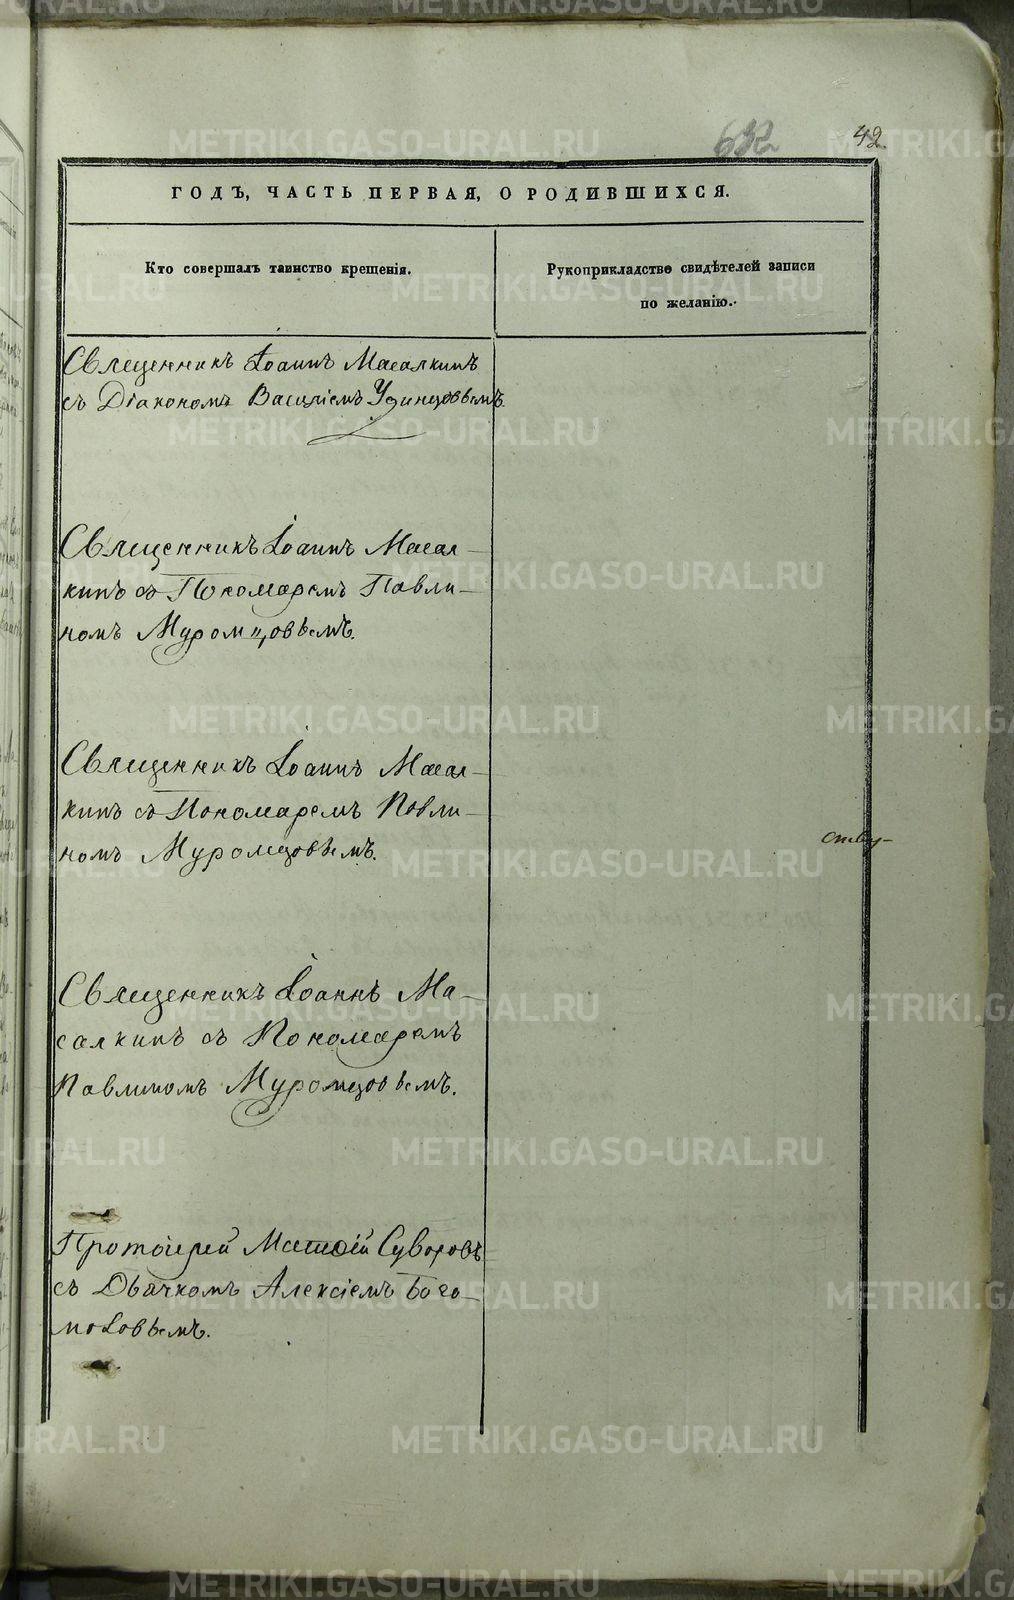 632 42
ГОДЪ, ЧАСТЬ ПЕРВАЯ, О РОДИВШИХСЯ.
Кто совершалъ таинство крещенія.
Рукоприкладство свидѣтелей записи
по желанію.
Священникъ Іоаннъ Масалкинъ
съ Діакономъ Василіемъ Удинцовымъ.
Священникъ Іоаннъ Масал-
кинъ съ Пономаремъ Павли-
номъ Муромцовымъ.
Священникъ Іоаннъ Масал-
кинъ съ Пономаремъ Павли-
номъ Муромцовымъ.
Священникъ Іоаннъ Ма-
салкинъ съ Пономаремъ
Павлиномъ Муромцовымъ.
Протоіерей Матѳій Суворовъ
съ Дьячкомъ Алексіемъ Бого-
моловымъ.
METRIKI.GASO-URAL.RU